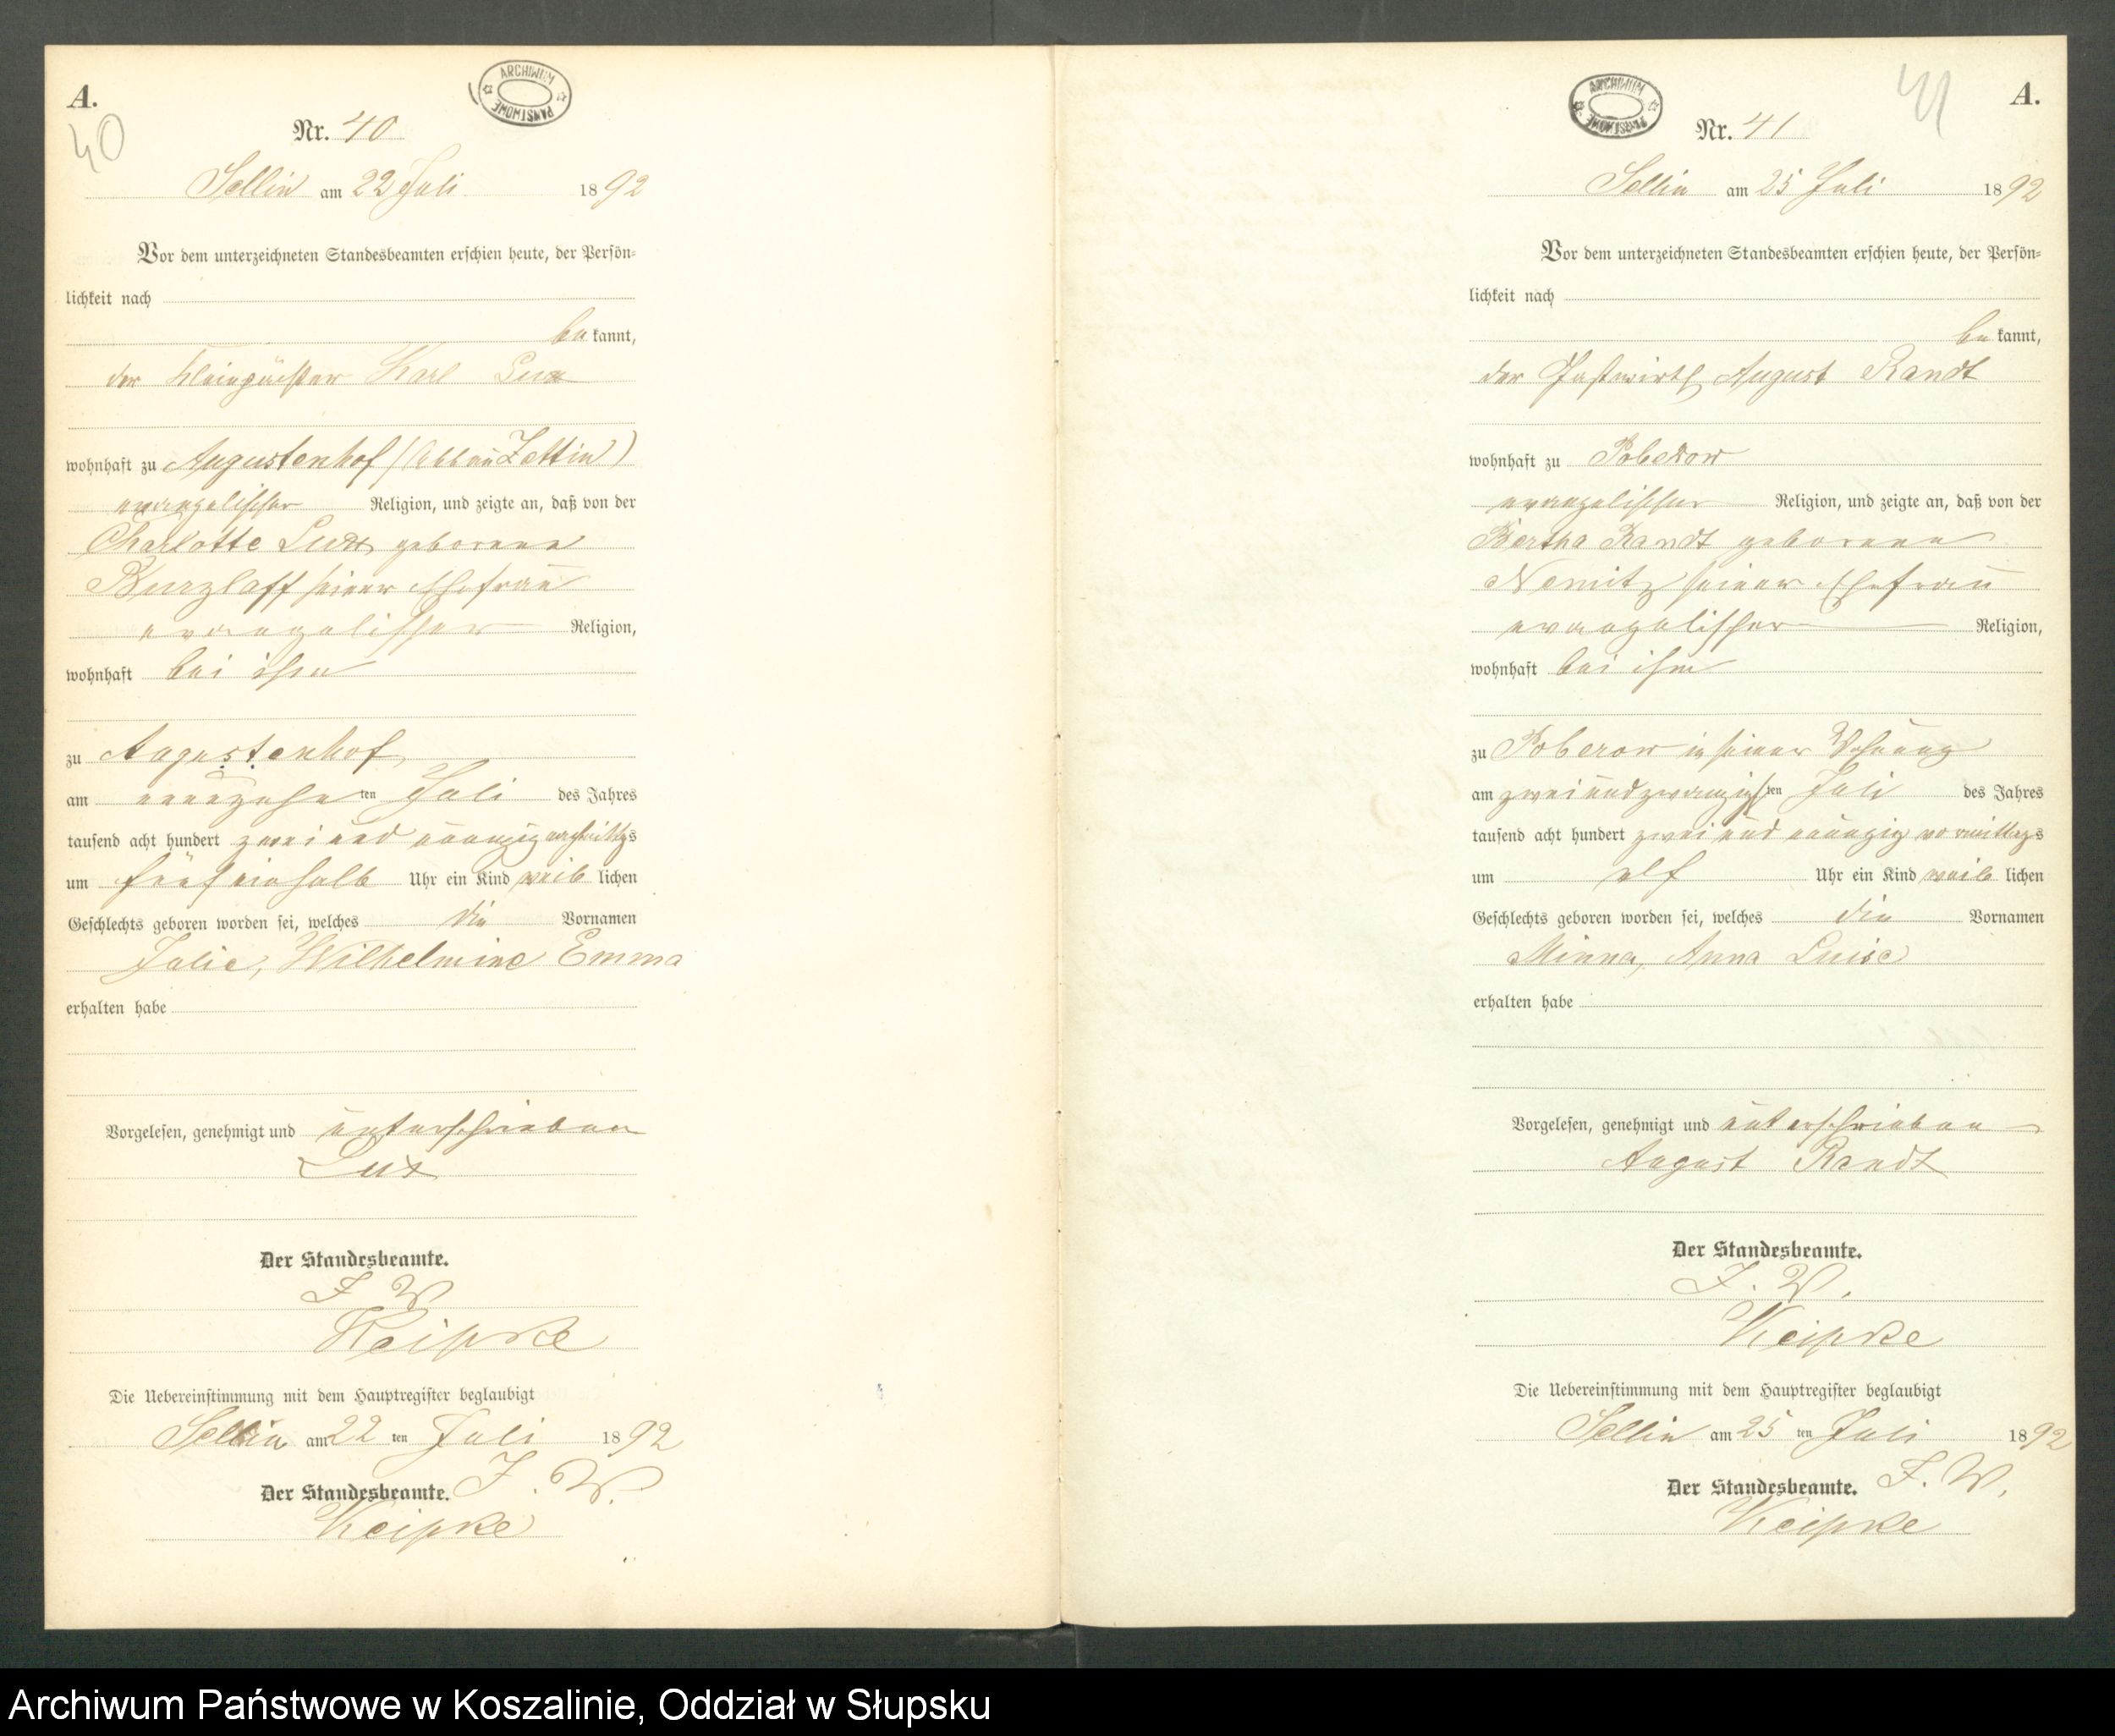 A.
40
ARCHIWUM PAŃSTWOWE
Nr. 40
Sellin am 22 Juli 1892
Vor dem unterzeichneten Standesbeamten erschien heute, der Persön-
lichkeit nach
bekannt,
der Kleinpächter Karl Lux
wohnhaft zu Augustenhof (Abbau Zettin)
evangelischer Religion, und zeigte an, daß von der
Charlotte Lux geborene
Kurzlaff seiner Ehefrau
evangelischer Religion,
wohnhaft bei ihm
zu Augustenhof
am neunzehnten Juli des Jahres
tausend acht hundert zwei und neunzig nachmittags
um fünfeinhalb Uhr ein Kind weiblichen
Geschlechts geboren worden sei, welches die Vornamen
Julie, Wilhelmine Emma
erhalten habe
Vorgelesen, genehmigt und unterschrieben
Lux
Der Standesbeamte.
J W
Keipke
Die Uebereinstimmung mit dem Hauptregister beglaubigt
Sellin am 22 ten Juli 1892
Der Standesbeamte. J. W.
Keipke
A.
41
ARCHIWUM PAŃSTWOWE
Nr. 41
Sellin am 25 Juli 1892
Vor dem unterzeichneten Standesbeamten erschien heute, der Persön-
lichkeit nach
bekannt,
der Gastwirth August Randt
wohnhaft zu Poberow
evangelischer Religion, und zeigte an, daß von der
Bertha Randt geborene
Nemitz seiner Ehefrau
evangelischer Religion,
wohnhaft bei ihm
zu Poberow in seiner Wohnung
am zweiundzwanzigsten Juli des Jahres
tausend acht hundert zwei und neunzig vormittags
um elf Uhr ein Kind weiblichen
Geschlechts geboren worden sei, welches die Vornamen
Minna, Anna Luise
erhalten habe
Vorgelesen, genehmigt und unterschrieben
August Randt
Der Standesbeamte.
J. W.
Keipke
Die Uebereinstimmung mit dem Hauptregister beglaubigt
Sellin am 25 ten Juli 1892
Der Standesbeamte. J. W.
Keipke
Archiwum Państwowe w Koszalinie, Oddział w Słupsku